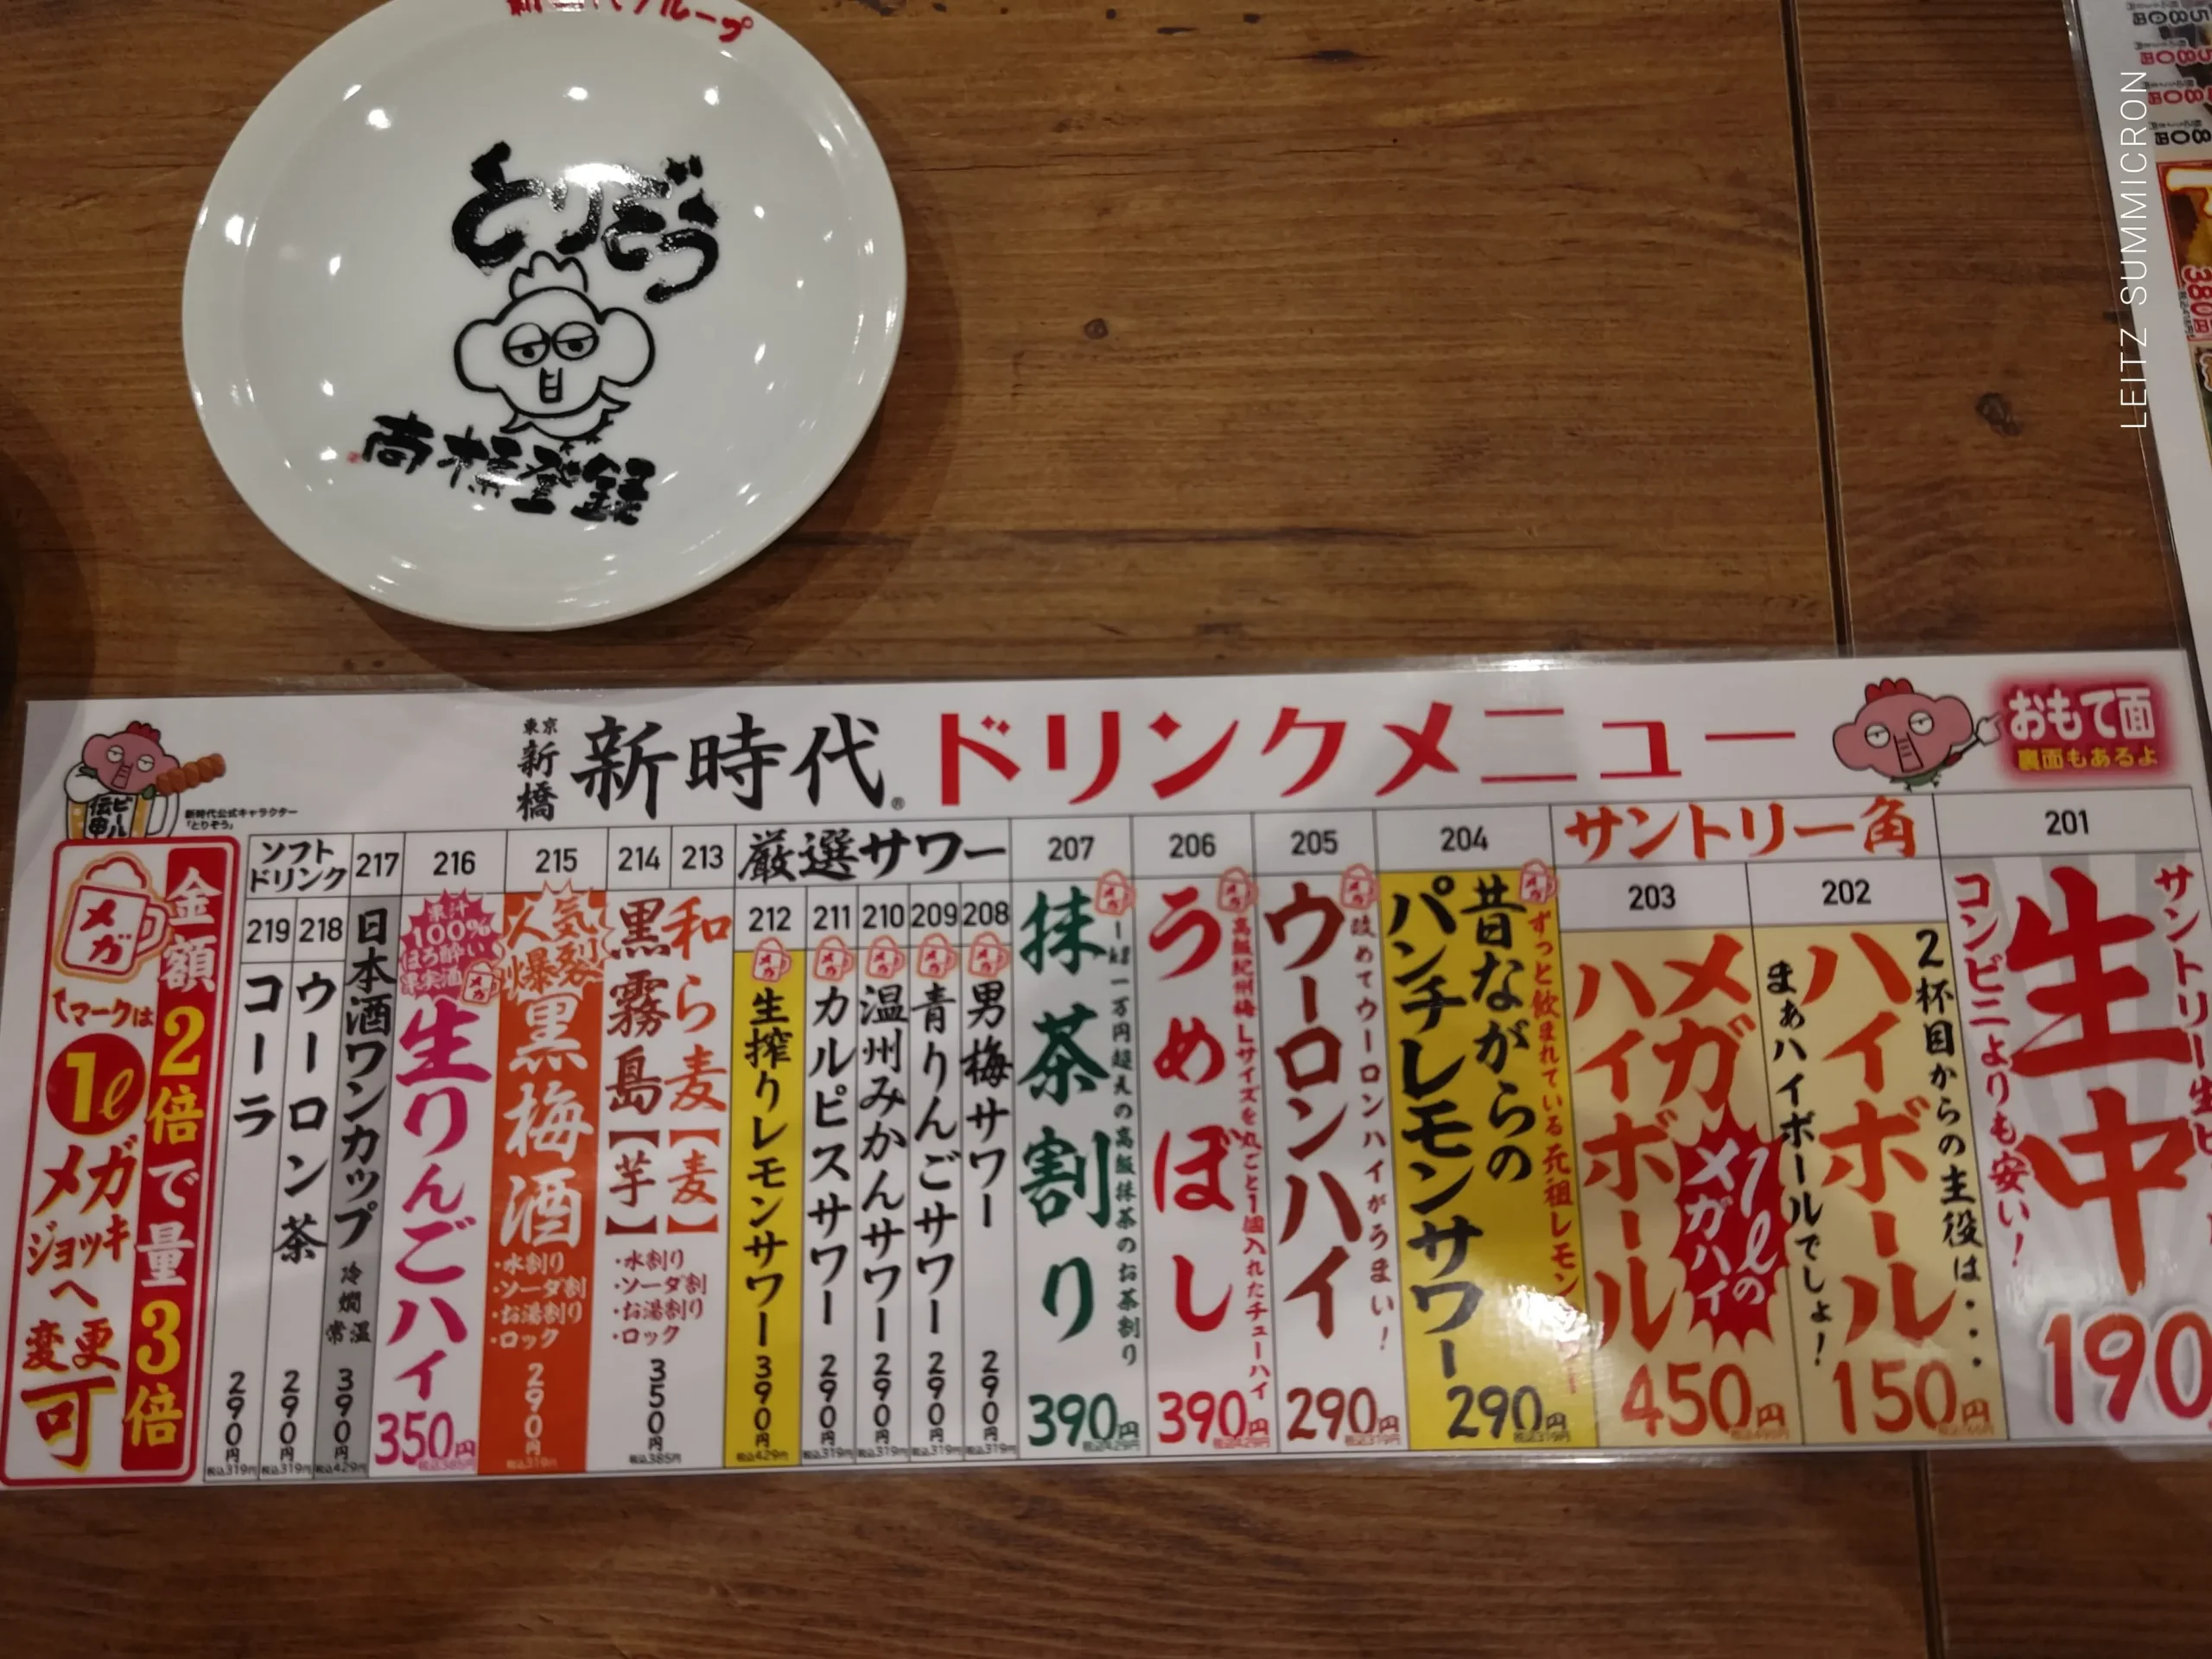 とりぞう
商標登録
LEITZ SUMMICRON
東京
新橋
新時代®
ドリンクメニュー
おもて面
裏面もあるよ
新時代公式キャラクター
「とりぞう」
201
サントリー生ビ
生中
コンビニよりも安い!
190
サントリー角
202
2杯目からの主役は・・・
ハイボール
まぁハイボールでしょ!
150円
203
メガ
ハイボール
1ℓの
メガハイ
450円
204
メガ
ずっと飲まれている元祖レモン
昔ながらの
パンチレモンサワー
290円
税込319円
205
メガ
改めてウーロンハイがうまい!
ウーロンハイ
290円
税込319円
206
メガ
高級紀州梅Lサイズを丸ごと1個入れたチューハイ
うめぼし
390円
税込429円
207
メガ
1kg一万円超えの高級抹茶のお茶割り
抹茶割り
390円
税込429円
厳選サワー
208
メガ
男梅サワー
290円
税込319円
209
メガ
青りんごサワー
290円
税込319円
210
メガ
温州みかんサワー
290円
税込319円
211
メガ
カルピスサワー
290円
税込319円
212
メガ
生搾りレモンサワー
390円
税込429円
213
和ら麦【麦】
214
黒霧島【芋】
・水割り
・ソーダ割
・お湯割り
・ロック
350円
税込385円
215
人気
爆裂
黒梅酒
・水割り
・ソーダ割
・お湯割り
・ロック
290円
税込319円
216
果汁
100%
ほろ酔い
果実酒
メガ
生りんごハイ
350円
税込385円
217
日本酒ワンカップ
冷
燗
常温
390円
税込429円
ソフト
ドリンク
218
ウーロン茶
290円
税込319円
219
コーラ
290円
税込319円
金額2倍で量3倍
メガ
マークは
1ℓ
メガ
ジョッキ
へ
変更
可